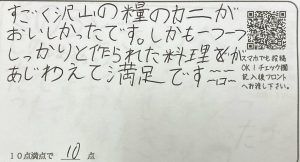 すごく沢山の糧のカニが
おいしかったです。しかも一つ一つ
しっかりと作られた料理をが
あじわえて満足です
スマホでも投稿
OK!チェック欄
記入後フロント
へお渡し下さい。
10点満点で 10 点